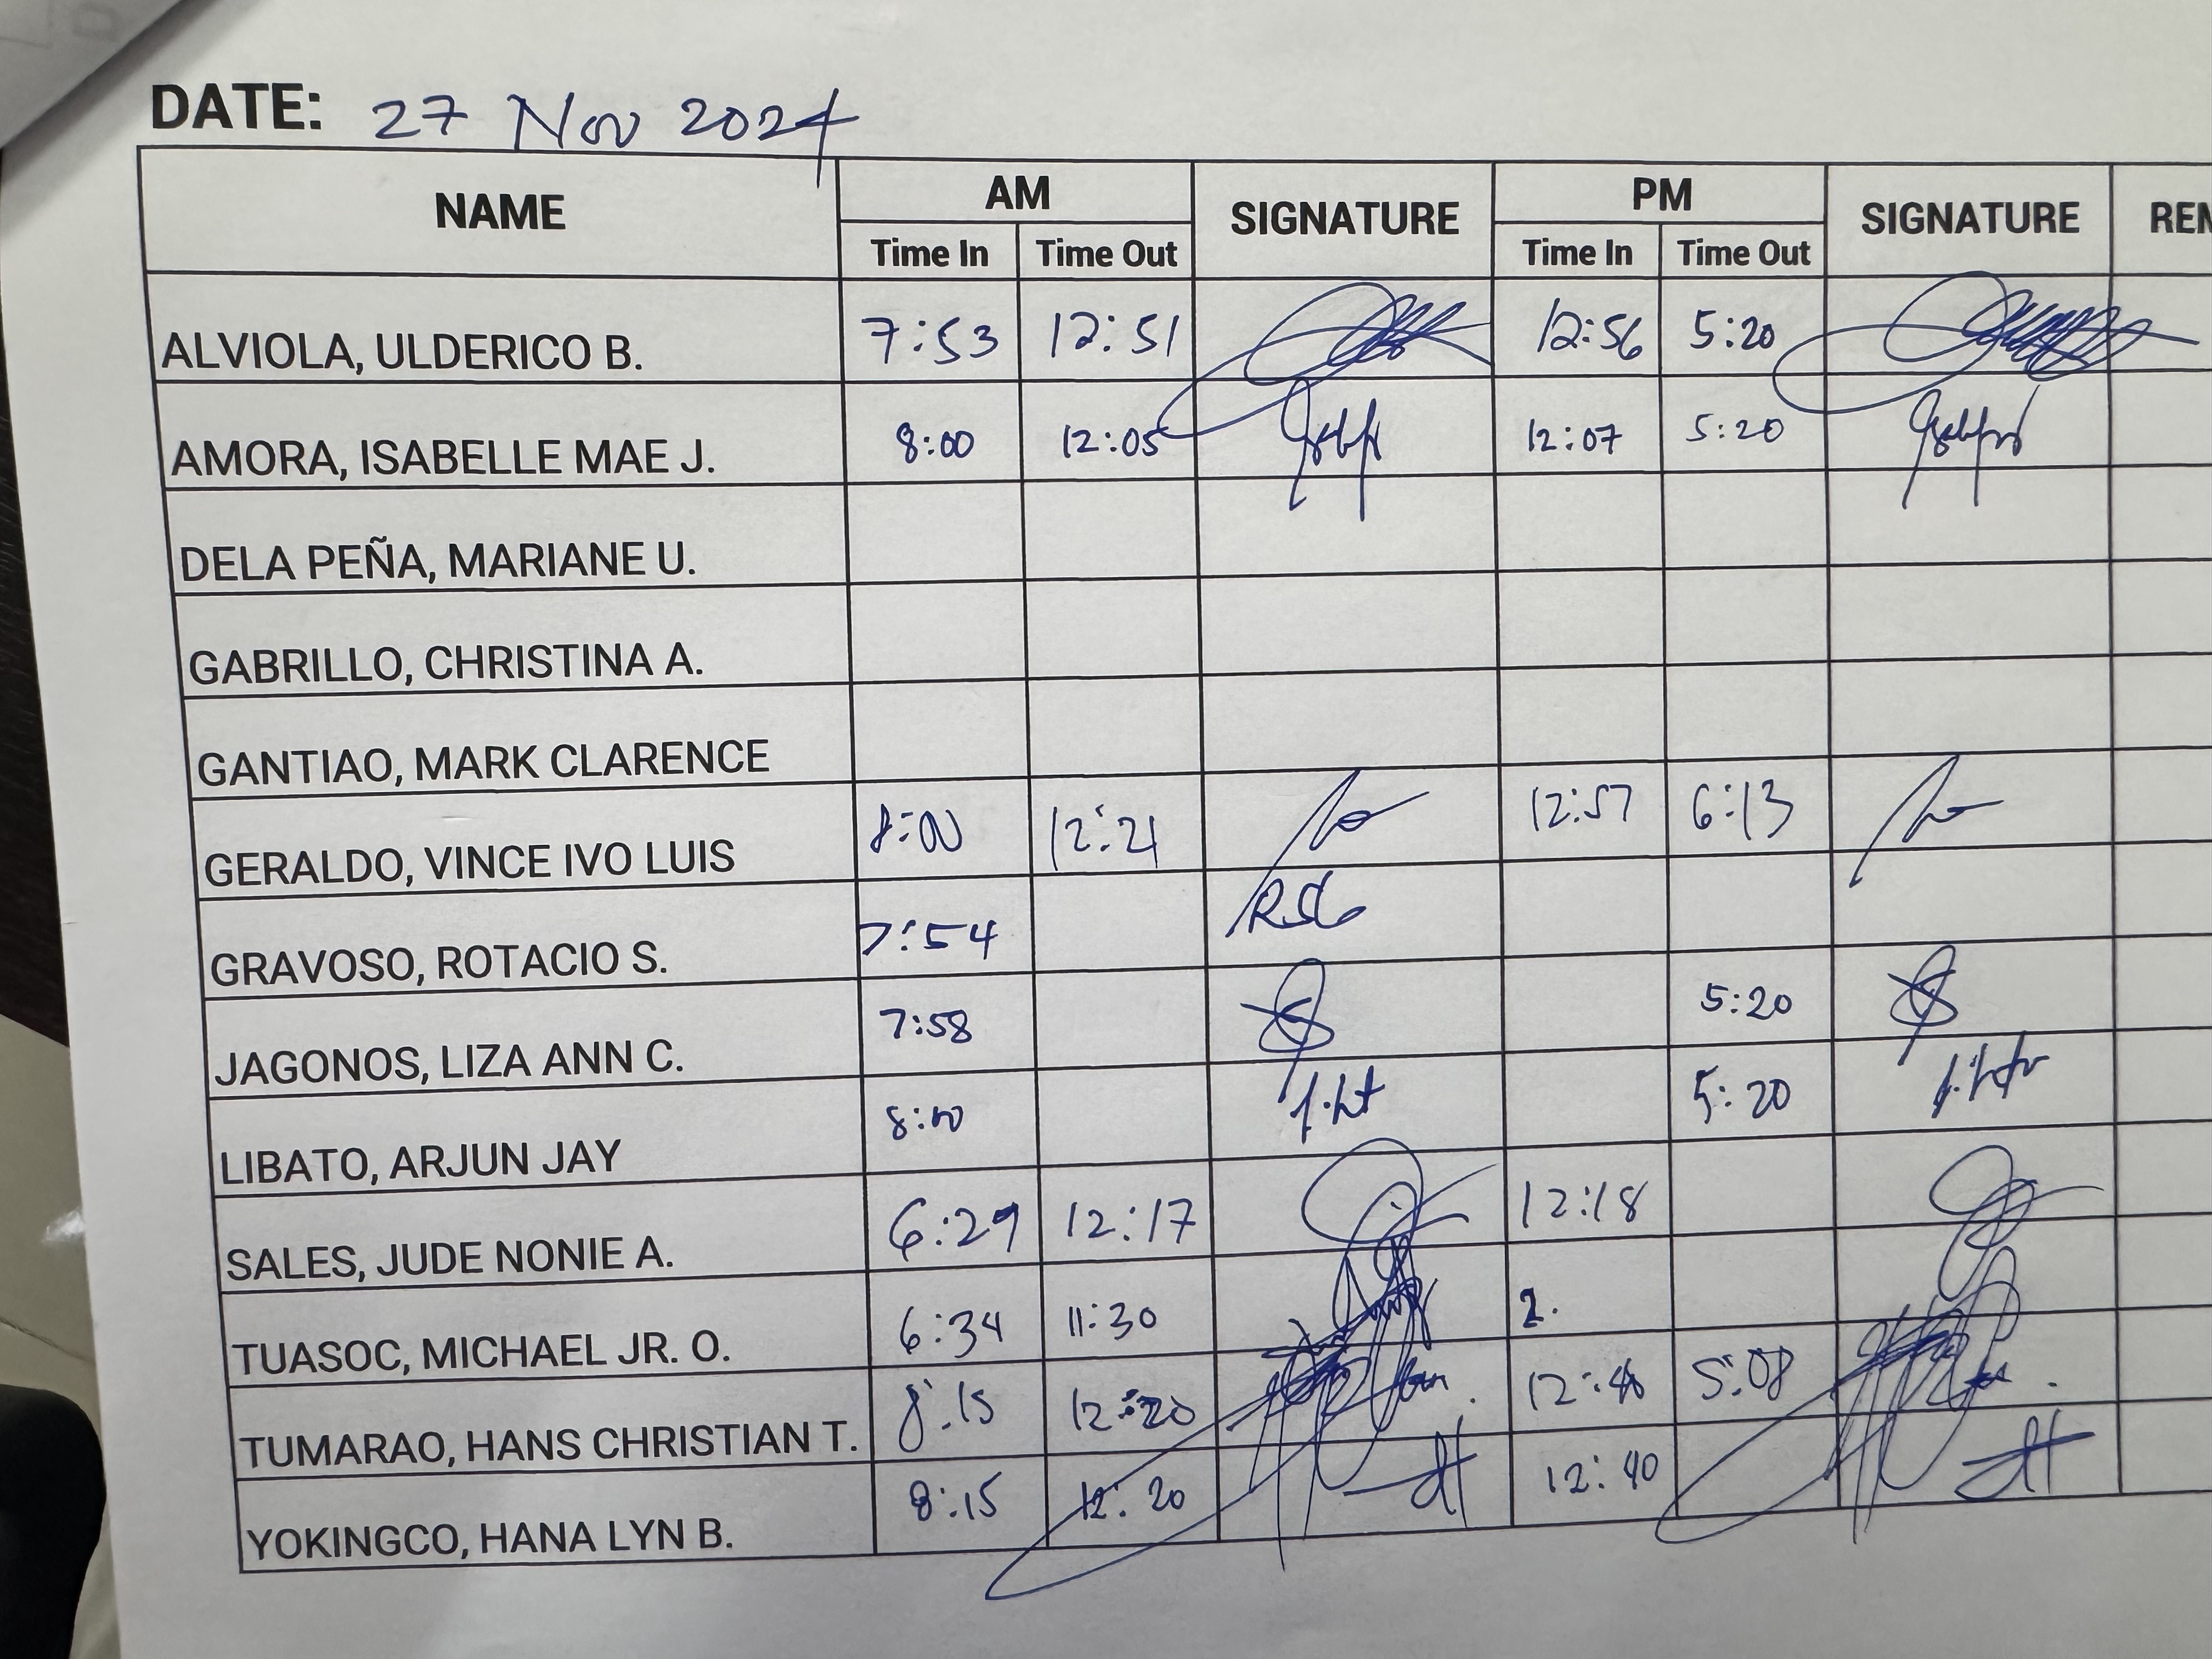 DATE: 27 Nov 2024
NAME AM SIGNATURE PM SIGNATURE REM
Time In Time Out Time In Time Out
ALVIOLA, ULDERICO B. 7:53 12:51 12:56 5:20
AMORA, ISABELLE MAE J. 8:00 12:05 12:07 5:20
DELA PEÑA, MARIANE U.
GABRILLO, CHRISTINA A.
GANTIAO, MARK CLARENCE
GERALDO, VINCE IVO LUIS 8:00 12:21 12:57 6:13
GRAVOSO, ROTACIO S. 7:54
JAGONOS, LIZA ANN C. 7:58 5:20
LIBATO, ARJUN JAY 8:00 5:20
SALES, JUDE NONIE A. 6:29 12:17 12:18
TUASOC, MICHAEL JR. O. 6:34 11:30
TUMARAO, HANS CHRISTIAN T. 8:15 12:20 5:08
YOKINGCO, HANA LYN B. 8:15 12:20 12:40